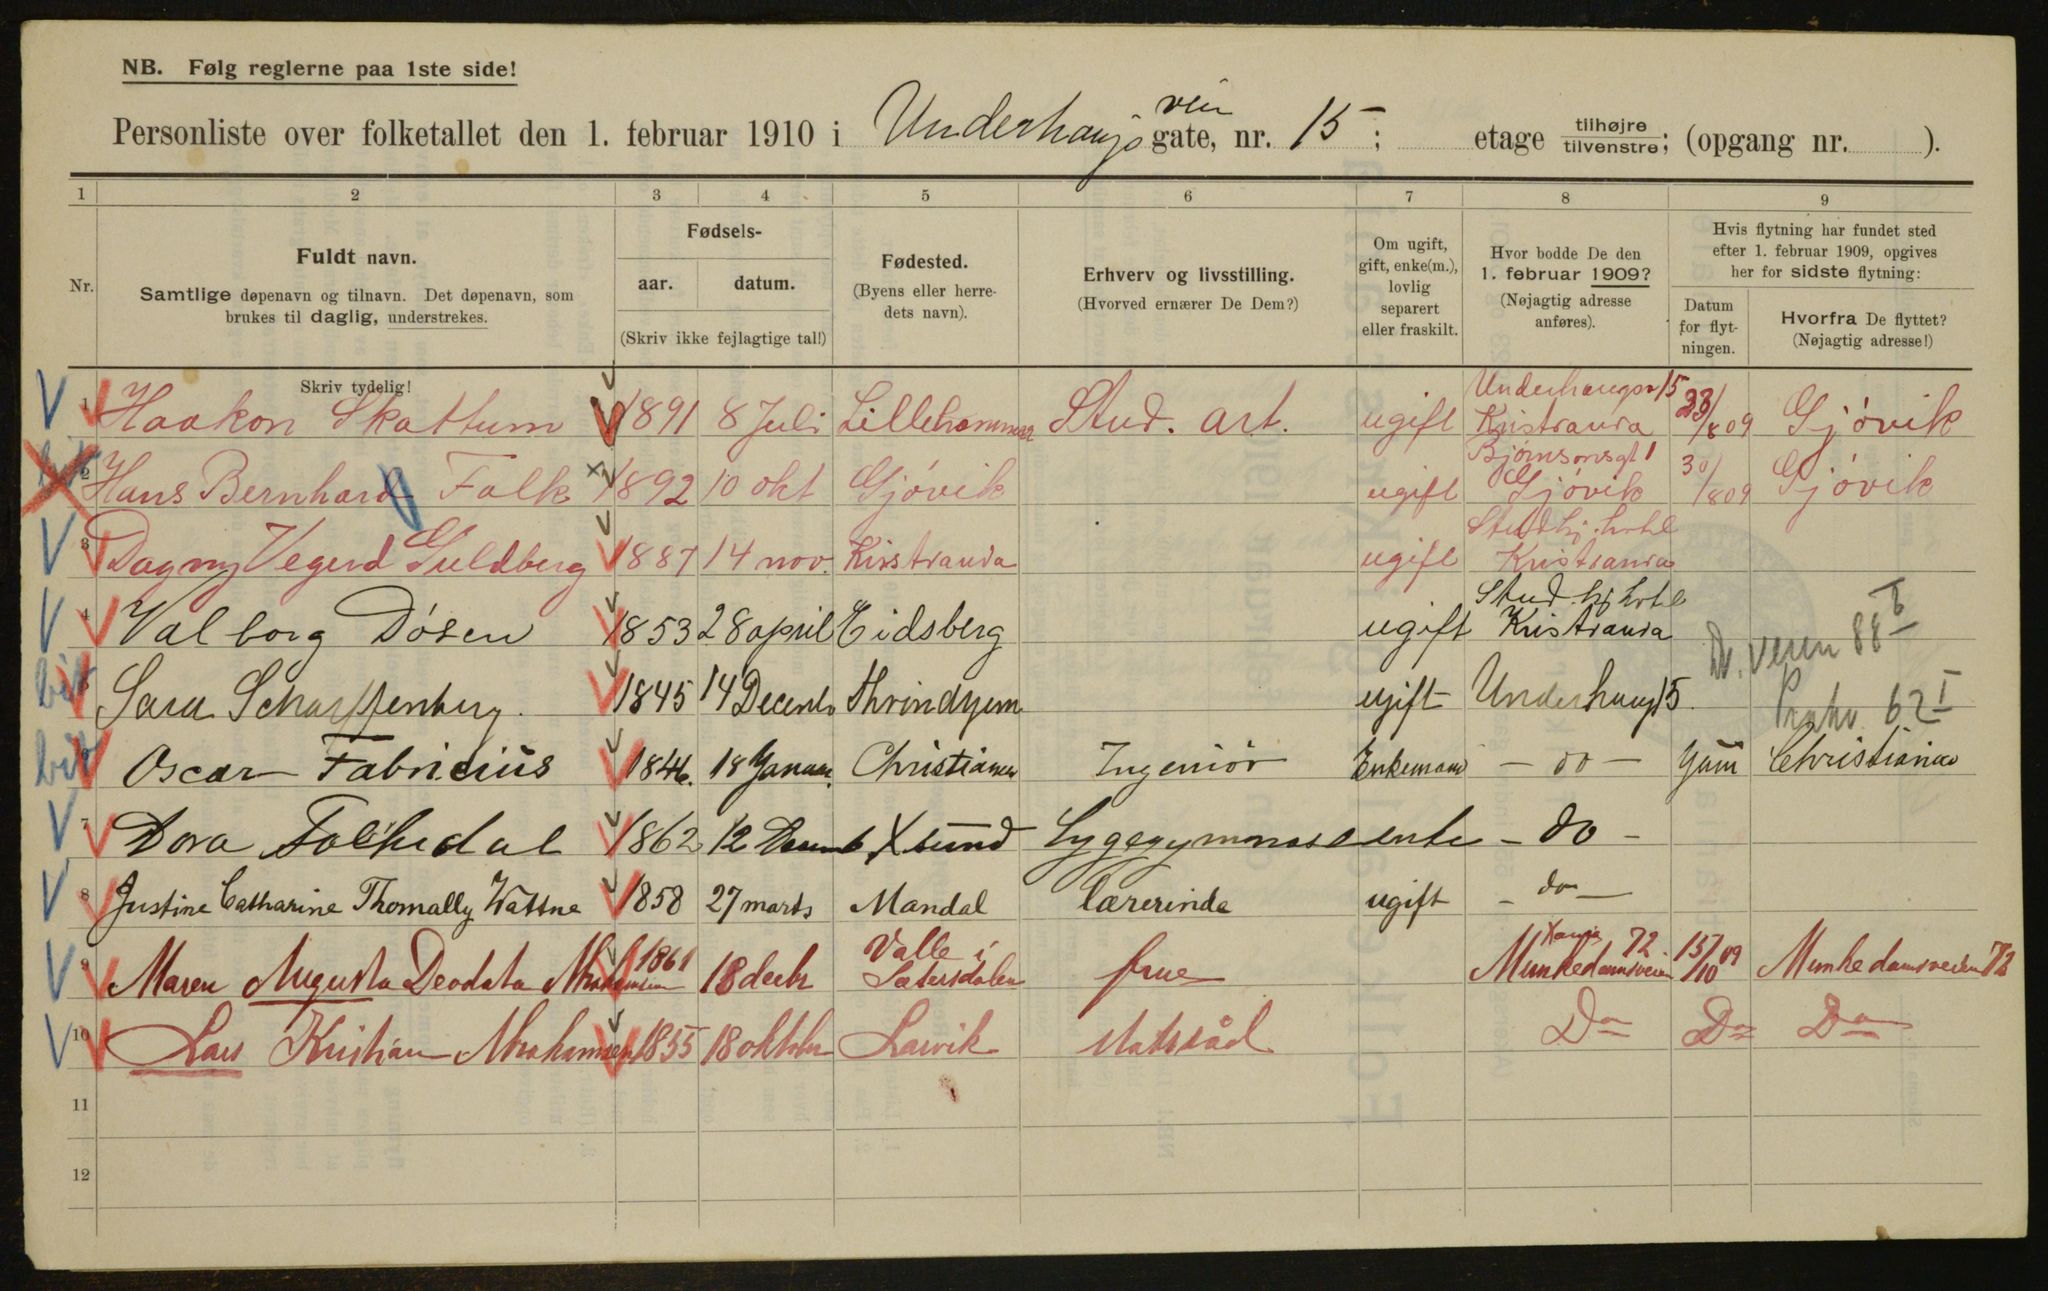 NB. Følg reglerne paa 1ste side!
Personliste over folketallet den 1. februar 1910 i Underhaugs veien gate, nr. 15 ; etage tilhøjre tilvenstre; (opgang nr. ).
1 2 3 4 5 6 7 8 9
Nr.
Fuldt navn.
Samtlige døpenavn og tilnavn. Det døpenavn, som
brukes til daglig, understrekes.
Skriv tydelig!
Fødsels-
aar. datum.
(Skriv ikke fejlagtige tal!)
Fødested.
(Byens eller herre-
dets navn).
Erhverv og livsstilling.
(Hvorved ernærer De Dem?)
Om ugift,
gift, enke(m.),
lovlig
separert
eller fraskilt.
Hvor bodde De den
1. februar 1909?
(Nøjagtig adresse
anføres).
Hvis flytning har fundet sted
efter 1. februar 1909, opgives
her for sidste flytning:
Datum
for flyt-
ningen.
Hvorfra De flyttet?
(Nøjagtig adresse!)
1 Haakon Skattum 1891 8 Juli Lillehammer Stud. art. ugift Underhaugsv 15 Kristiania 23/8 09 Gjøvik
2 Hans Bernhard Falk 1892 10 okt Gjøvik ugift Bjørnsonsgt 1 Gjøvik 30/8 09 Gjøvik
3 Dagny Vegerd Guldberg 1887 14 nov. Kristiania ugift Stud hj. hotel Kristiania
4 Valborg Døsen 1853 28 april Eidsberg ugift Stud. hj hotel Kristiania
5 Sara Scharffenberg. 1845 14 Decemb Thrindhjem ugift Underhaug 15. veien 88 I
62 I
6 Oscar Fabricius 1846. 18 Januar. Christiania Ingeniør Enkemand - do - Christiania
7 Dora 1862 12 X sund Sygegymnast enke - do -
8 Justine Catharine Thomally Wattne 1858 27 marts Mandal lærerinde ugift - do -
9 Maren Augusta Deodata Abrahamsen 1861 18 decbr Valle i Sætersdalen frue Xania Munkedamsveien 72 15/10 09 Munkedamsveien 72
10 Lars Kristian Abrahamsen 1855 18 oktober Larvik statsråd Do Do Do
11
12